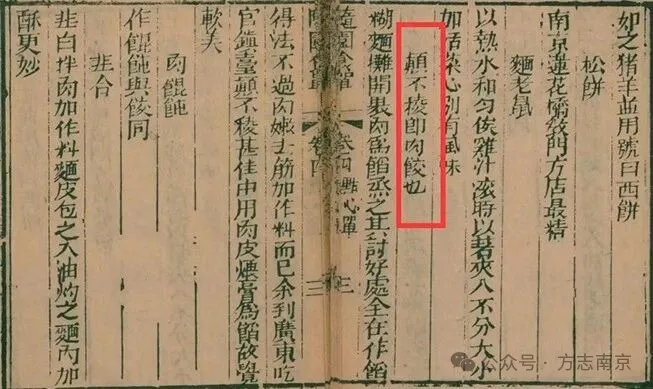 如之猪羊並用號曰西餅
松餅
南京蓮花橋教門方店最精
麵老鼠
以熱水和勻俟雞汁滾時以箸夾入不分大小
加活菜心別有風味
顛不稜即肉餃也
糊麵攤開裹肉為餡蒸之其討好處全在作餡
隨園食單 卷四 點心單 三
隨園食單 卷四 三
得法不過肉嫩去筋加作料而已余到廣東吃
官鎮臺顛不稜甚佳中用肉皮煨膏為餡故覺
軟美
肉餛飩
作餛飩與餃同
韭合
韭白拌肉加作料麵皮包之入油灼之麵內加
酥更妙
公众号 · 方志南京